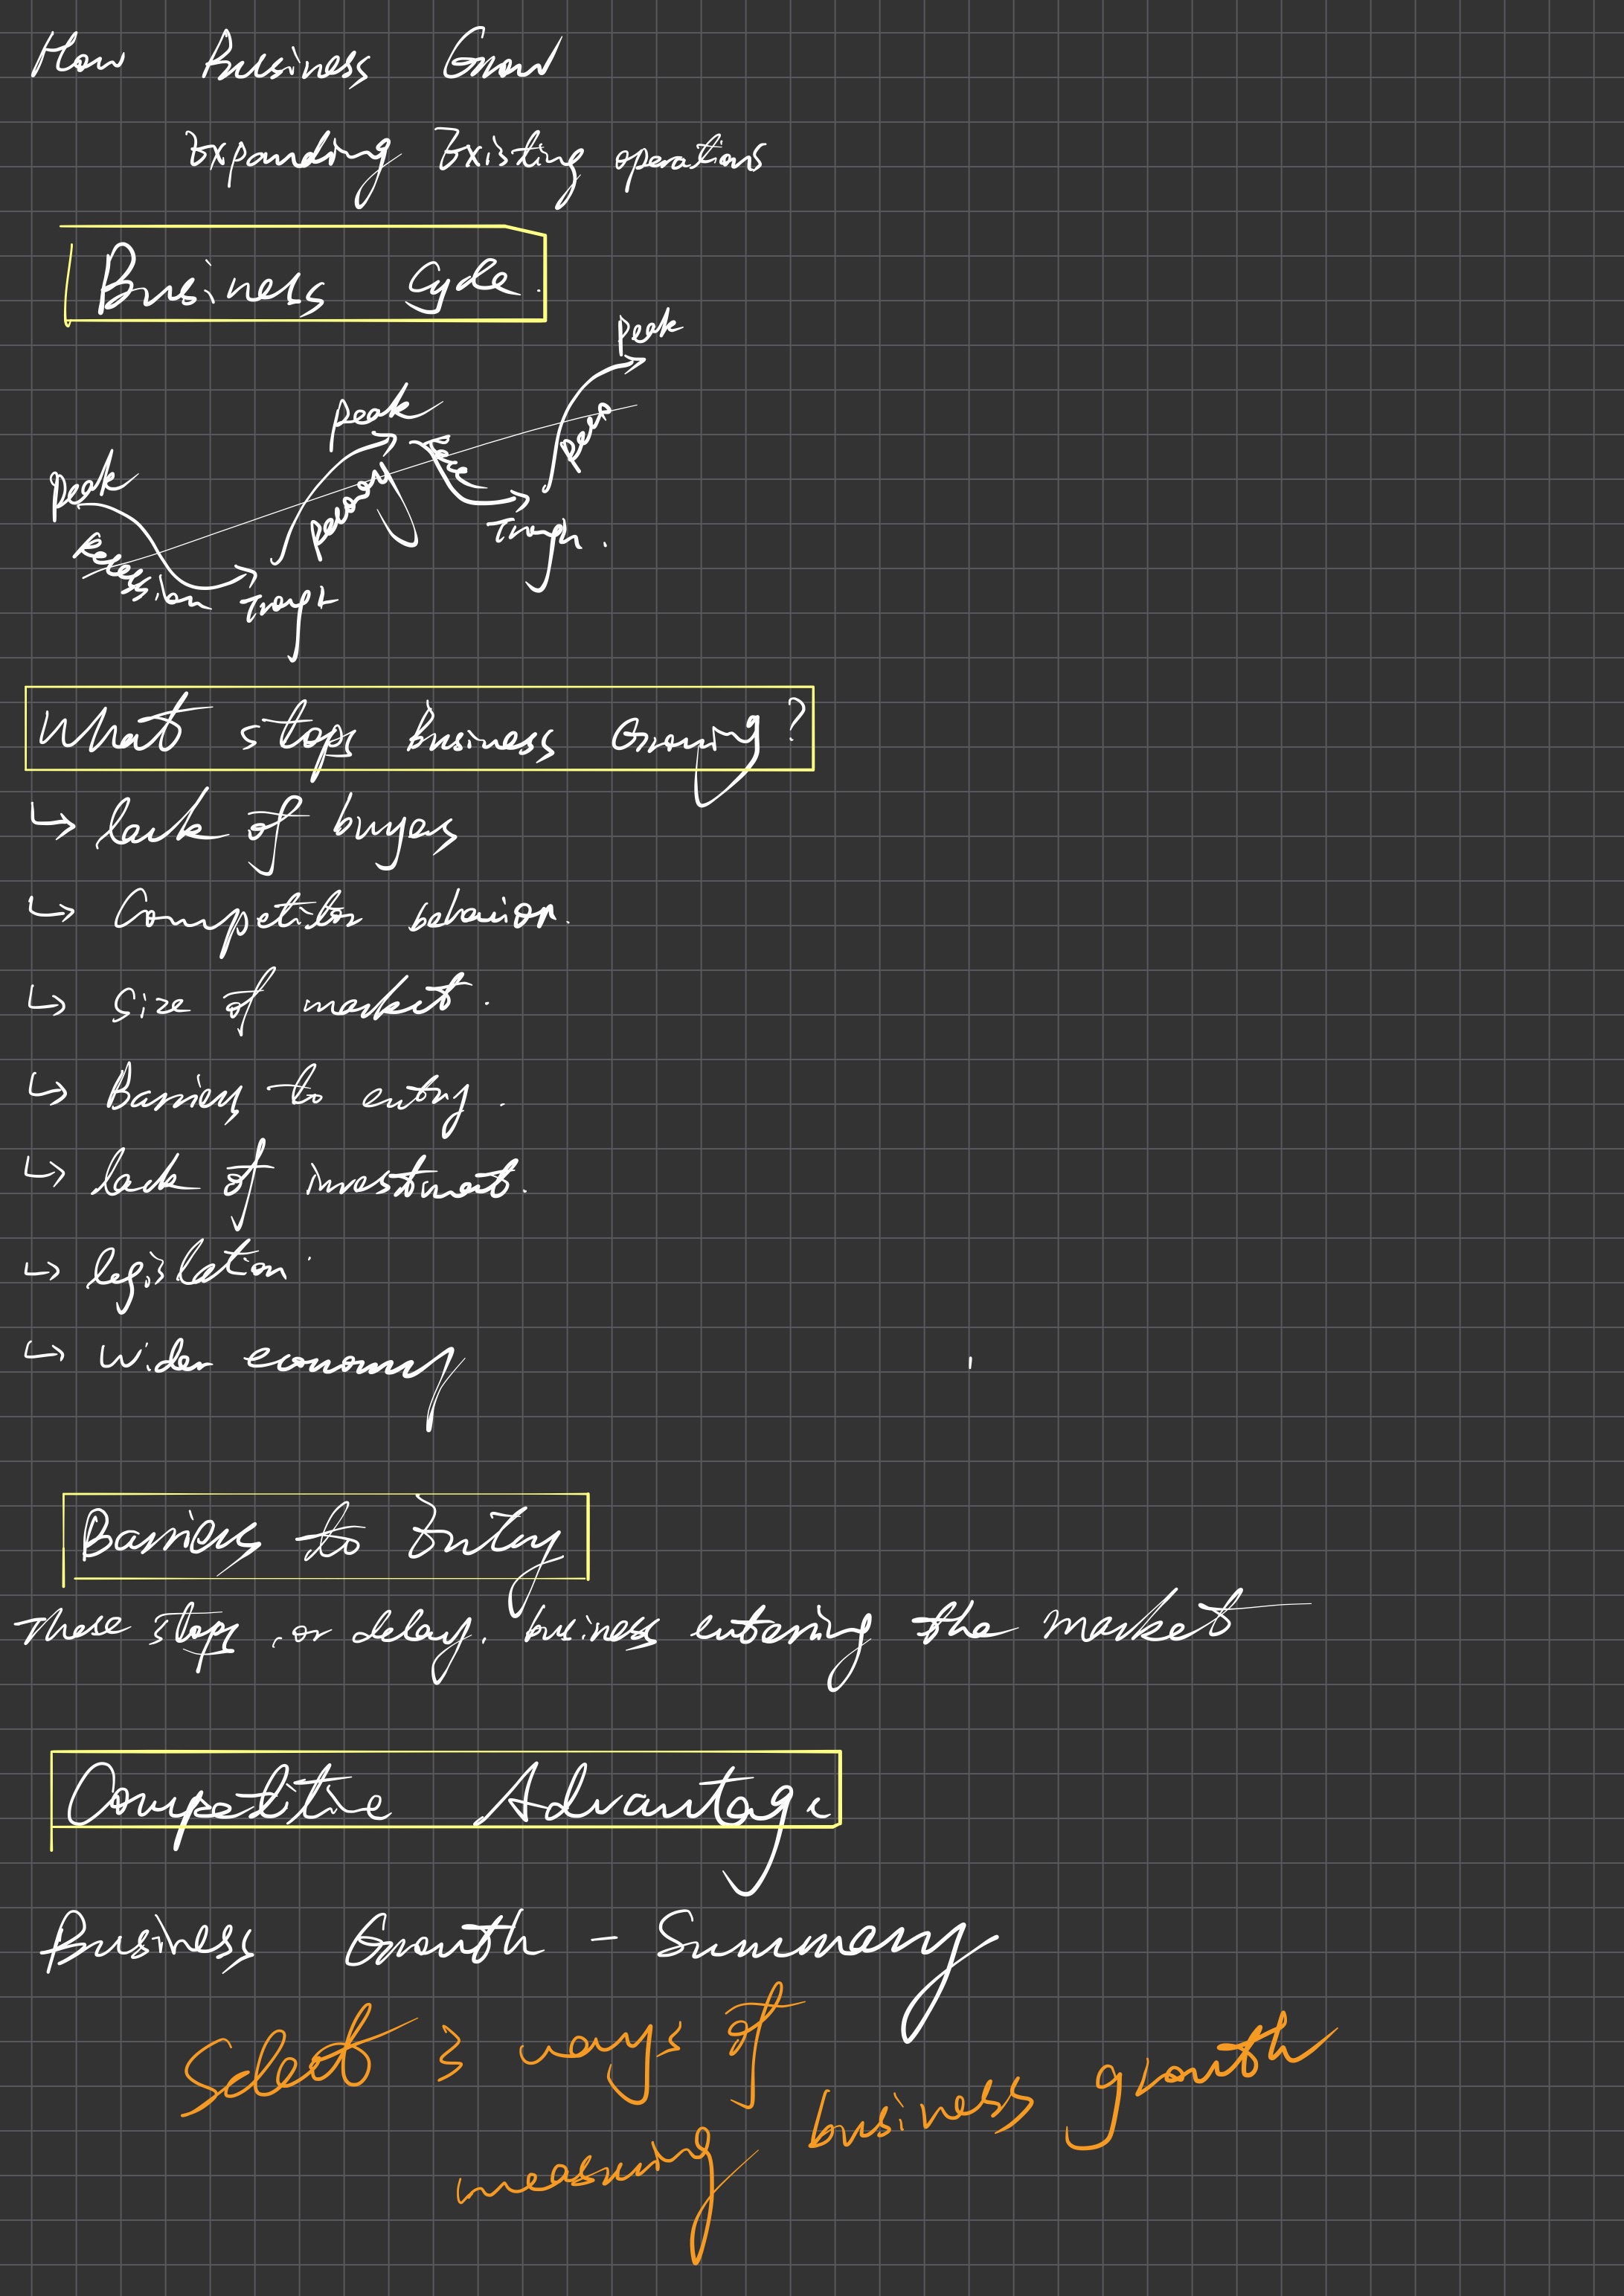 How Business Grow
Expanding Existing operations
Business Cycle.
Peak
Recession
Trough
Recovery
Peak
Rece
Trough.
Reco
Peak
What stops business Growing?
↳ lack of buyers
↳ Competitor behavior.
↳ Size of market.
↳ Barriers to entry.
↳ lack of investment.
↳ legislation.
↳ Wider economy
Barriers to Entry
These stops, or delay, business entering the market
Competitive Advantage
Business Growth - Summary
Select 3 ways of
measuring business growth